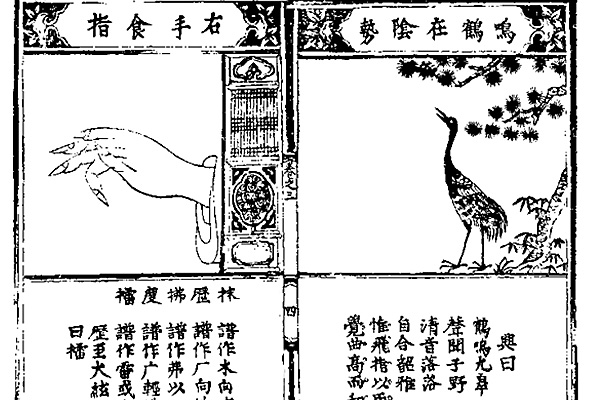 鳴鶴在陰勢
興曰
鶴鳴九皋
聲聞子野
清音落落
自合韶雅
惟飛指以
覺曲高而和
四
右手食指
抹歷拂度擂
譜作木向
譜作厂向
譜作弗以
譜作广輕
譜作雷或
歷至大絃
曰擂